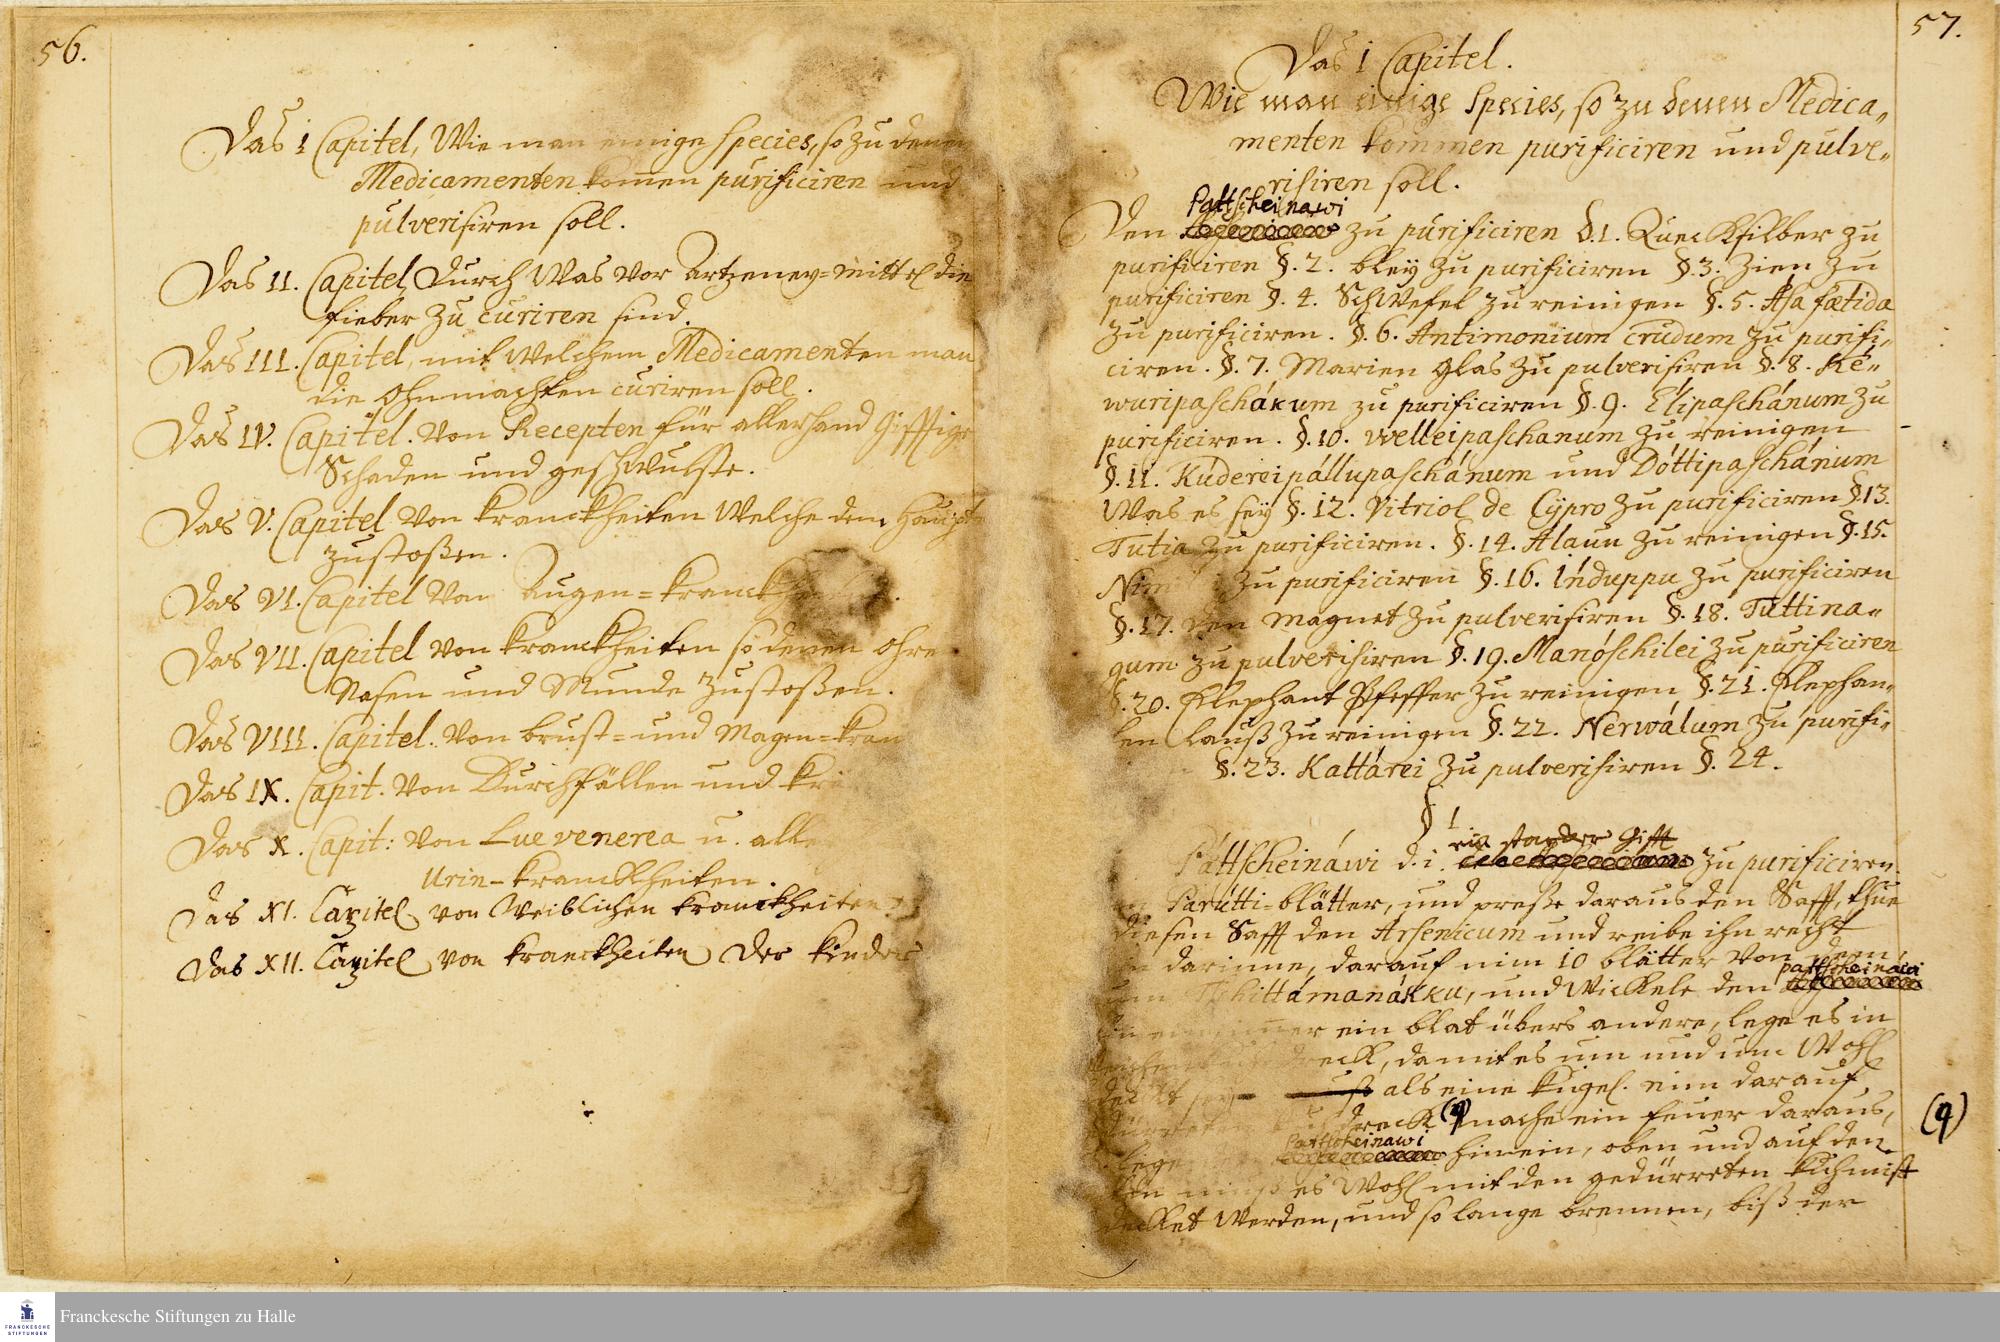 56.
Das i Capitel, Wie man einige species, so zu denen
Medicamenten kom̄en purificiren und
pulverisiren soll.
Das II. Capitel, Durch Was vor Artzeney=Mittel die
Fieber zu curiren sind.
Das III. Capitel, mit Welchem Medicamenten man
die Ohnmachten curiren soll.
Das IV. Capitel. Von Recepten für allerhand Gifftige
Schaden und geschwulste.
Das V. Capitel Von Kranckheiten Welche dem Haupt
zustoßen.
Das VI. Capitel Von Augen=Kranckh
Das VII. Capitel Von Kranckheiten so denen Ohre
Nasen und Munde zustoßen.
Das VIII. Capitel. Von brust= und Magen=Kran
Das IX. Capit. Von Durchfällen und
Das X. Capit: Von Lue venerea u. alle
Urin-Kranckheiten.
Das XI. Capitel von Weiblichen Kranckheiten
Das XII. Capitel von Kranckheiten der Kinder
57.
Das i Capitel.
Wie man einige Species, so zu denen Medica„
menten kommen purificiren und pulve„
risiren soll.
Pattscheinawi
Den zu purificiren §.1. Queckſilber zu
purificiren §.2. bley zu purificiren §.3. Zien zu
purificiren §.4. Schwefel zu reinigen §.5. Asa fœtida
zu purificiren. §.6. Antimonium crudum zu purifi„
ciren. §.7. Marien Glas zu pulverisiren §.8. Ké„
wuripaschákum zu purificiren §.9. Élipaschánum zu
purificiren. §.10. welleipaschanum zu reinigen
§.11. Kúdereipállupaschánum und Dóttipaschánum
Was es sey §.12. Vitriol de Cypro zu purificiren §.13.
Tutia zu purificiren. §.14. Alaun zu reinigen §.15.
zu purificiren §.16. Índuppu zu purificiren
§.17. den Magnet zu pulverisiren §.18. Tuttina„
gum zu pulverisiren §.19. Manóschilei zu purificiren
§.20. Elephant Pfeffer zu reinigen §.21. Elephan„
ten Lauß zu reinigen §.22. Nerwálum zu purifi„
§.23. Kattárei zu pulverisiren §.24.
§ 1
ein starcker Gifft
Páttscheináwi d.i. zu purificiren.
Parútti=blätter, und presse daraus den Safft, thue
diesen Safft den Arsenicum und reibe ihn recht
darinne, darauf nim 10 blätter Von dem
pattscheinawi
Tschittámanákku, und Wickele den
ein blat übers andere, lege es in
dreck, damit es um und um Wohl
als eine Kugel. nim darauf
dreck (q) mache ein feuer daraus,
(q)
Pattscheinawi
hinein, oben und auf den
es Wohl mit den gedürreten Kühmist
decket Werden, und so lange brennen, biß der
FRANCKESCHE STIFTUNGEN
Franckesche Stiftungen zu Halle